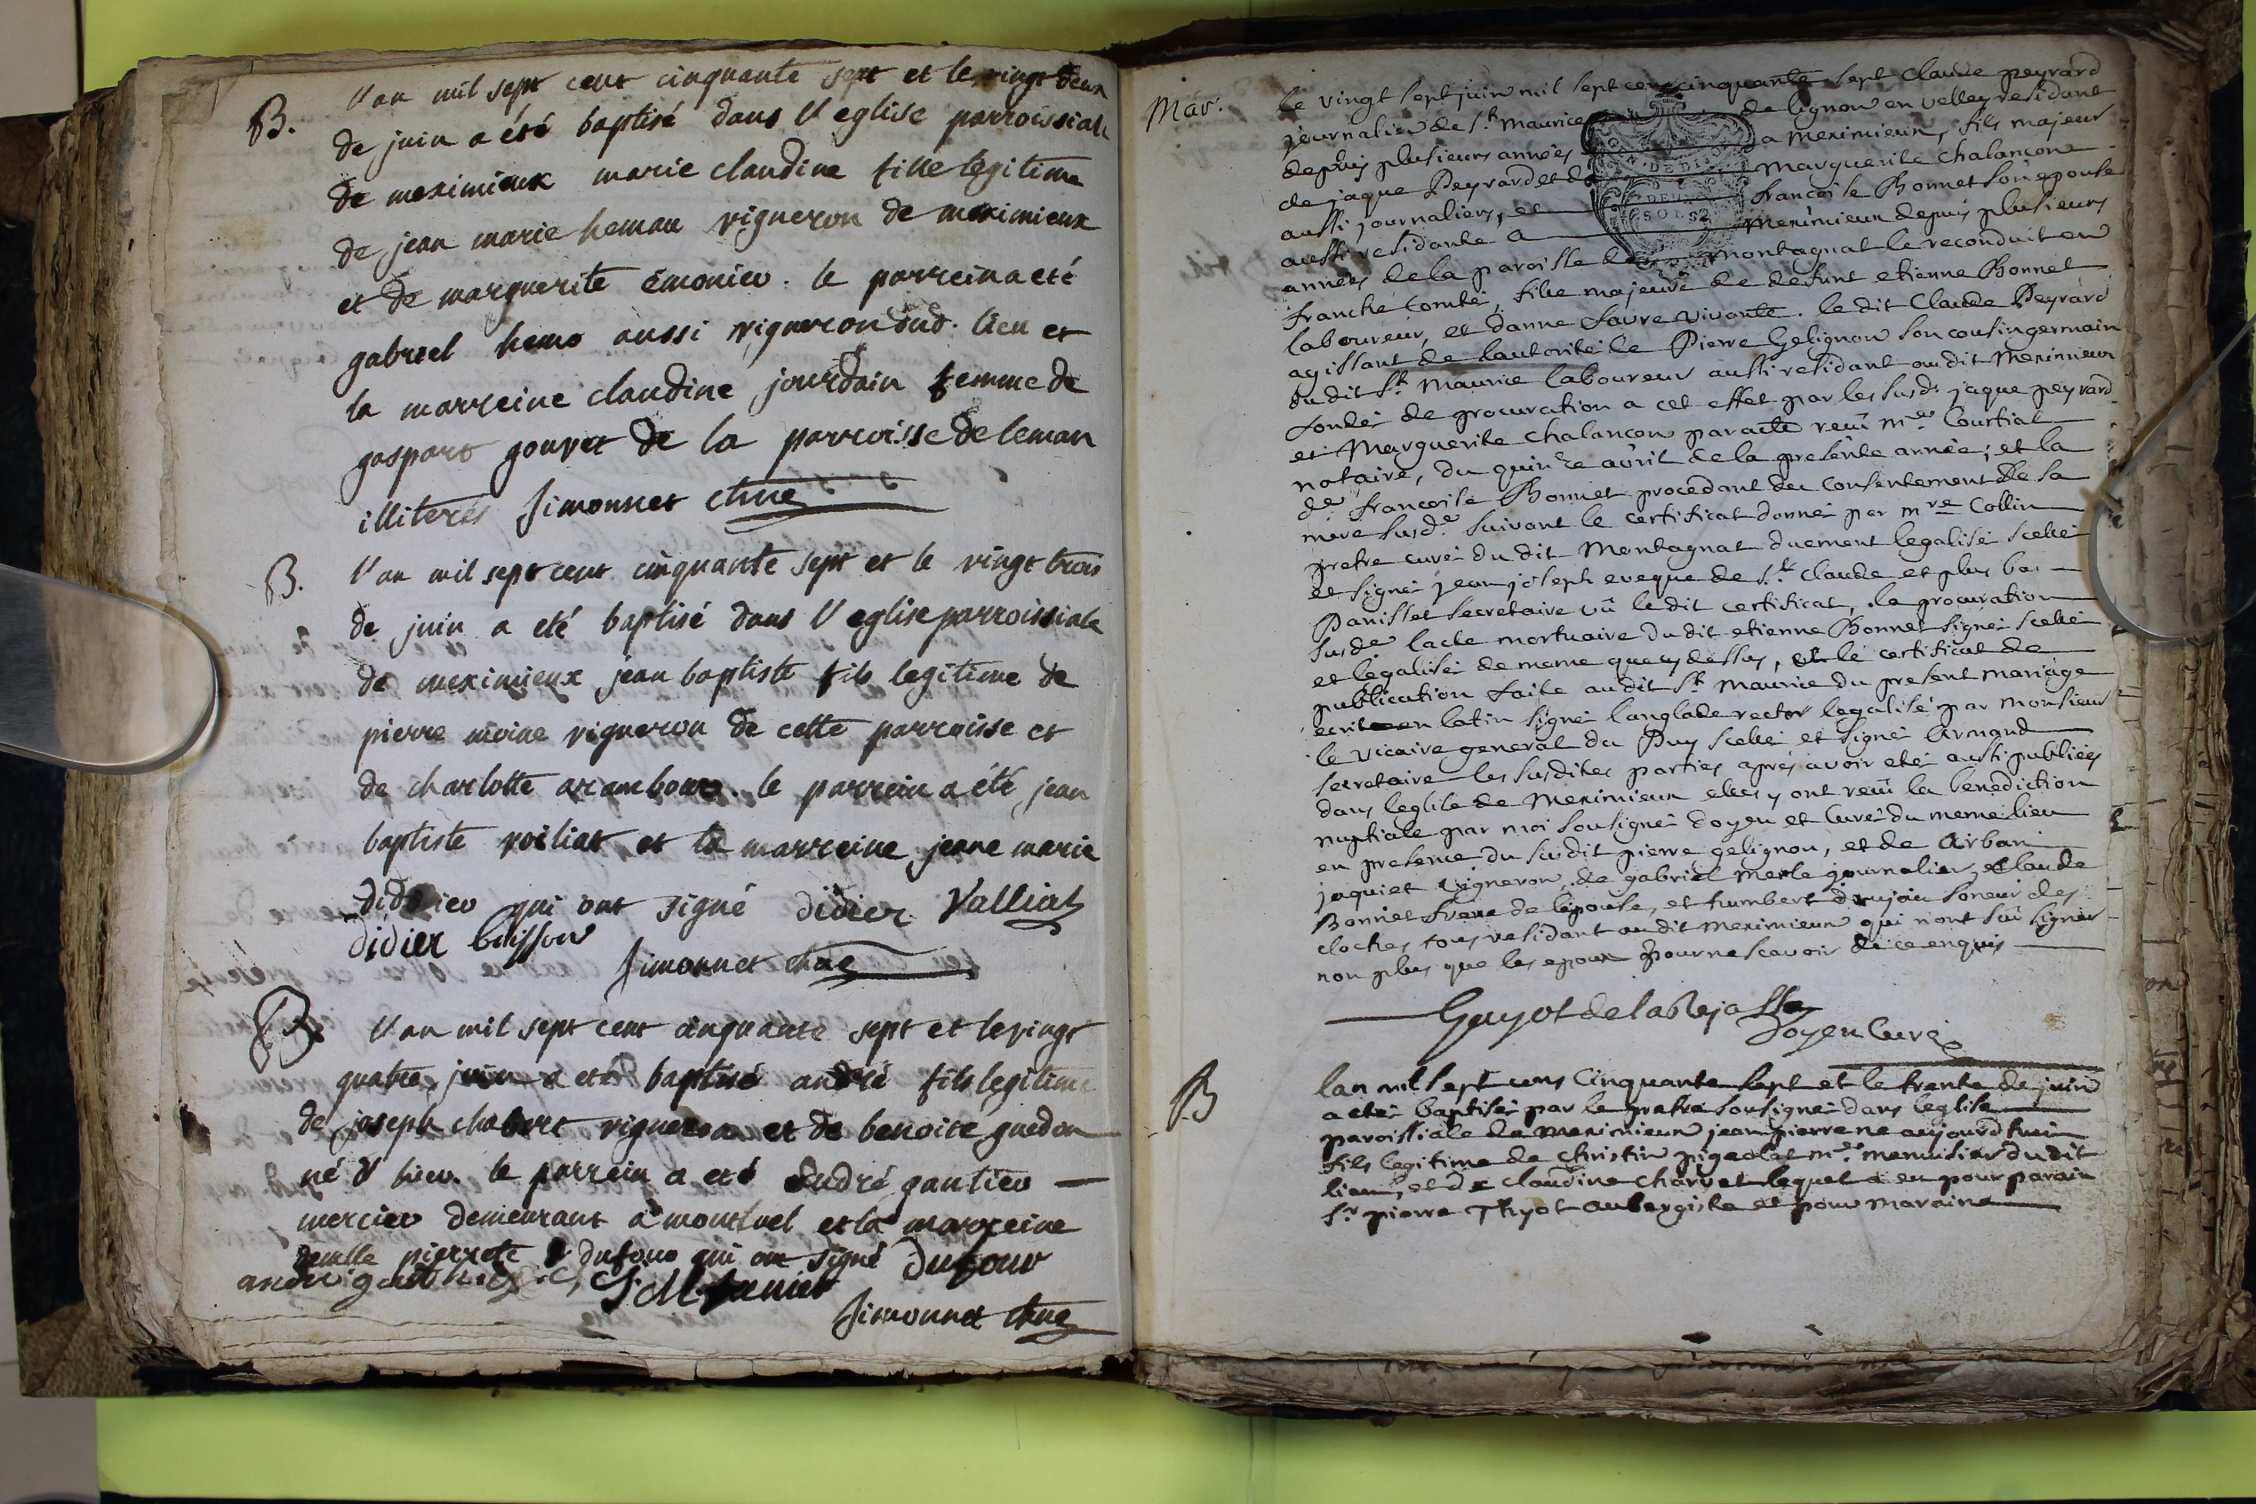 B.
l'an mil sept cent cinquante sept et le vingt deux
de juin a été baptisé dans l'eglise parroissiale
de meximieux marie claudine fille legitime
de jean marie heman vigneron de meximieux
et de marguerite émonieu. le parrein a eté
gabriel hemo aussi vigneron dud. lieu et
la marreine claudine jourdain femme de
gaspart gouvet de la parroisse de leman
illiterés Simonnet chne
B.
l'an mil sept cent cinquante sept et le vingt trois
de juin a eté baptisé dans l'eglise parroissiale
de meximieux jean baptiste fils legitime de
pierre moine vigneron de cette parroisse et
de charlotte arambour. le parrein a été jean
baptiste voiliat et la marreine jeane marie
didier qui ont signé didier Valliat
didier buisson
Simonnet chne
B.
l'an mil sept cent cinquante sept et le vingt
quatre juin a eté baptisé andré fils legitime
de joseph chabert vigneron et de benoite guedon
né d'hier. le parrein a eté andré gautier
mercier demeurant a montluel et la marreine
demlle pierrete dufour qui ont signé dufour
Simonnet chne
Mar.
le vingt sept juin mil sept cent cinquante sept Claude peyrard
journalier de st. maurice de lignon en velley residant
depuis plusieurs années a meximieux, fils majeur
de jaque Peyrard et de Marguerite chalancon
aussi journaliers, et francoise Bonnet son epouse
aussi residante a meximieux depuis plusieurs
années de la paroisse de montagnat le reconduit en
franche comté, fille majeure de defunt etienne Bonnet
laboureur, et danne favre vivante. le dit Claude Peyrard
agissant de lautorité de Pierre Gelignon son cousin germain
du dit st. Maurice laboureur aussi residant audit Meximieux
fondé de procuration a cet effet par les susds. jaque peyrard
et Marguerite chalancon par acte reçû me. Courtial
notaire, du quinze avril de la presente année; et la
de. francoise Bonnet procedant du consentement de sa
mere susde. suivant le certificat donné par mre Collin
pretre curé du dit Montagnat duement legalisé scellé
et signé jean joseph eveque de st. Claude et plus bas
Panisset secretaire vû le dit certificat, la procuration
susde lacte mortuaire du dit etienne Bonnet signé scellé
et legalisé de meme que cy dessus, et le certificat de
publication faite audit st. maurice du present mariage
ecrit en latin signé langlade rector legalisé par monsieur
le vicaire general du Puy scellé et signé Armand
secretaire les susdites parties aprés avoir eté aussi publiées
dans leglise de Meximieux elles y ont reçû la benediction
nuptiale par moi sousigné doyen et Curé du meme lieu
en presence du susdit pierre gelignon, et de Urbain
jaquiet vigneron, de gabriel merle journalier, Claude
Bonnet frere de lepouse, et humbert dujoin soneur des
cloches tous residant audit meximieux qui n'ont sçû signer
non plus que les epoux pour ne scavoir de ce enquis
Guyot de la Rejasse
doyen Curé
B
lan mil sept cens Cinquante sept et le trente de juin
a eté baptisé par le pretre sousigné dans leglise
paroissiale de meximieux jean pierre ne aujourdhui
fils legitime de christin pigeolat me. menuisier du dit
lieu, et de claudine charvet lequel a eu pour parain
sr. pierre Thyot aubergiste et pour maraine